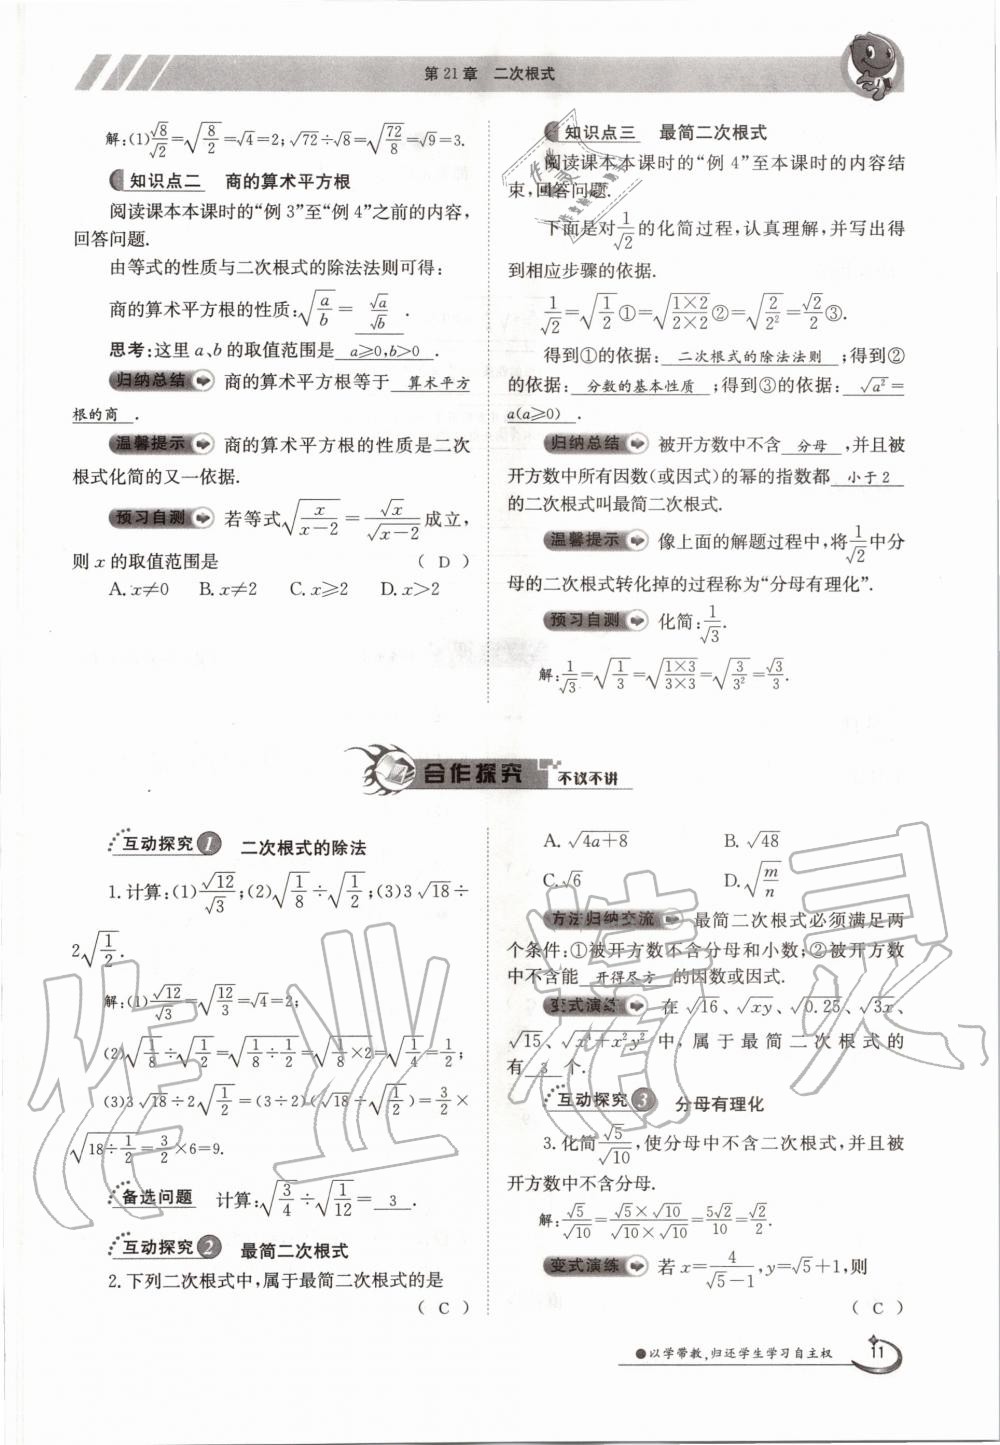 第21章 二次根式
解:(1)√8/√2=√(8/2)=√4=2;√72÷√8=√(72/8)=√9=3.
知识点二 商的算术平方根
阅读课本本课时的“例3”至“例4”之前的内容,
回答问题.
由等式的性质与二次根式的除法法则可得:
商的算术平方根的性质:√(a/b)= √a/√b .
思考:这里a、b的取值范围是 a≥0,b>0 .
归纳总结 商的算术平方根等于 算术平方
根的商 .
温馨提示 商的算术平方根的性质是二次
根式化简的又一依据.
预习自测 若等式√(x/(x-2))=√x/√(x-2)成立,
则x的取值范围是 ( D )
A.x≠0 B.x≠2 C.x≥2 D.x>2
知识点三 最简二次根式
阅读课本本课时的“例4”至本课时的内容结
束,回答问题.
下面是对1/√2的化简过程,认真理解,并写出得
到相应步骤的依据.
1/√2=√(1/2)①=√((1×2)/(2×2))②=√(2/2²)=√2/2③.
得到①的依据: 二次根式的除法法则 ;得到②
的依据: 分数的基本性质 ;得到③的依据: √a²=
a(a≥0) .
归纳总结 被开方数中不含 分母 ,并且被
开方数中所有因数(或因式)的幂的指数都 小于2
的二次根式叫最简二次根式.
温馨提示 像上面的解题过程中,将1/√2中分
母的二次根式转化掉的过程称为“分母有理化”.
预习自测 化简:1/√3.
解:1/√3=√(1/3)=√((1×3)/(3×3))=√(3/3²)=√3/3.
合作探究 不议不讲
互动探究1 二次根式的除法
1.计算:(1)√12/√3;(2)√(1/8)÷√(1/2);(3)3√18÷
2√(1/2).
解:(1)√12/√3=√(12/3)=√4=2;
(2)√(1/8)÷√(1/2)=√(1/8÷1/2)=√(1/8×2)=√(1/4)=1/2;
(3)3√18÷2√(1/2)=(3÷2)(√18÷√(1/2))=3/2×
√(18÷1/2)=3/2×6=9.
备选问题 计算:√(3/4)÷√(1/12)= 3 .
互动探究2 最简二次根式
2.下列二次根式中,属于最简二次根式的是
( C )
A.√(4a+8) B.√48
C.√6 D.√(m/n)
方法归纳交流 最简二次根式必须满足两
个条件:①被开方数不含分母和小数;②被开方数
中不含能 开得尽方 的因数或因式.
变式演练 在√16、√xy、√0.25、√3x、
√15、√(x²+x²y²)中,属于最简二次根式的
有 3 个.
互动探究3 分母有理化
3.化简√5/√10,使分母中不含二次根式,并且被
开方数中不含分母.
解:√5/√10=(√5×√10)/(√10×√10)=5√2/10=√2/2.
变式演练 若x=4/(√5-1),y=√5+1,则
( C )
●以学带教,归还学生学习自主权
11
作业精灵